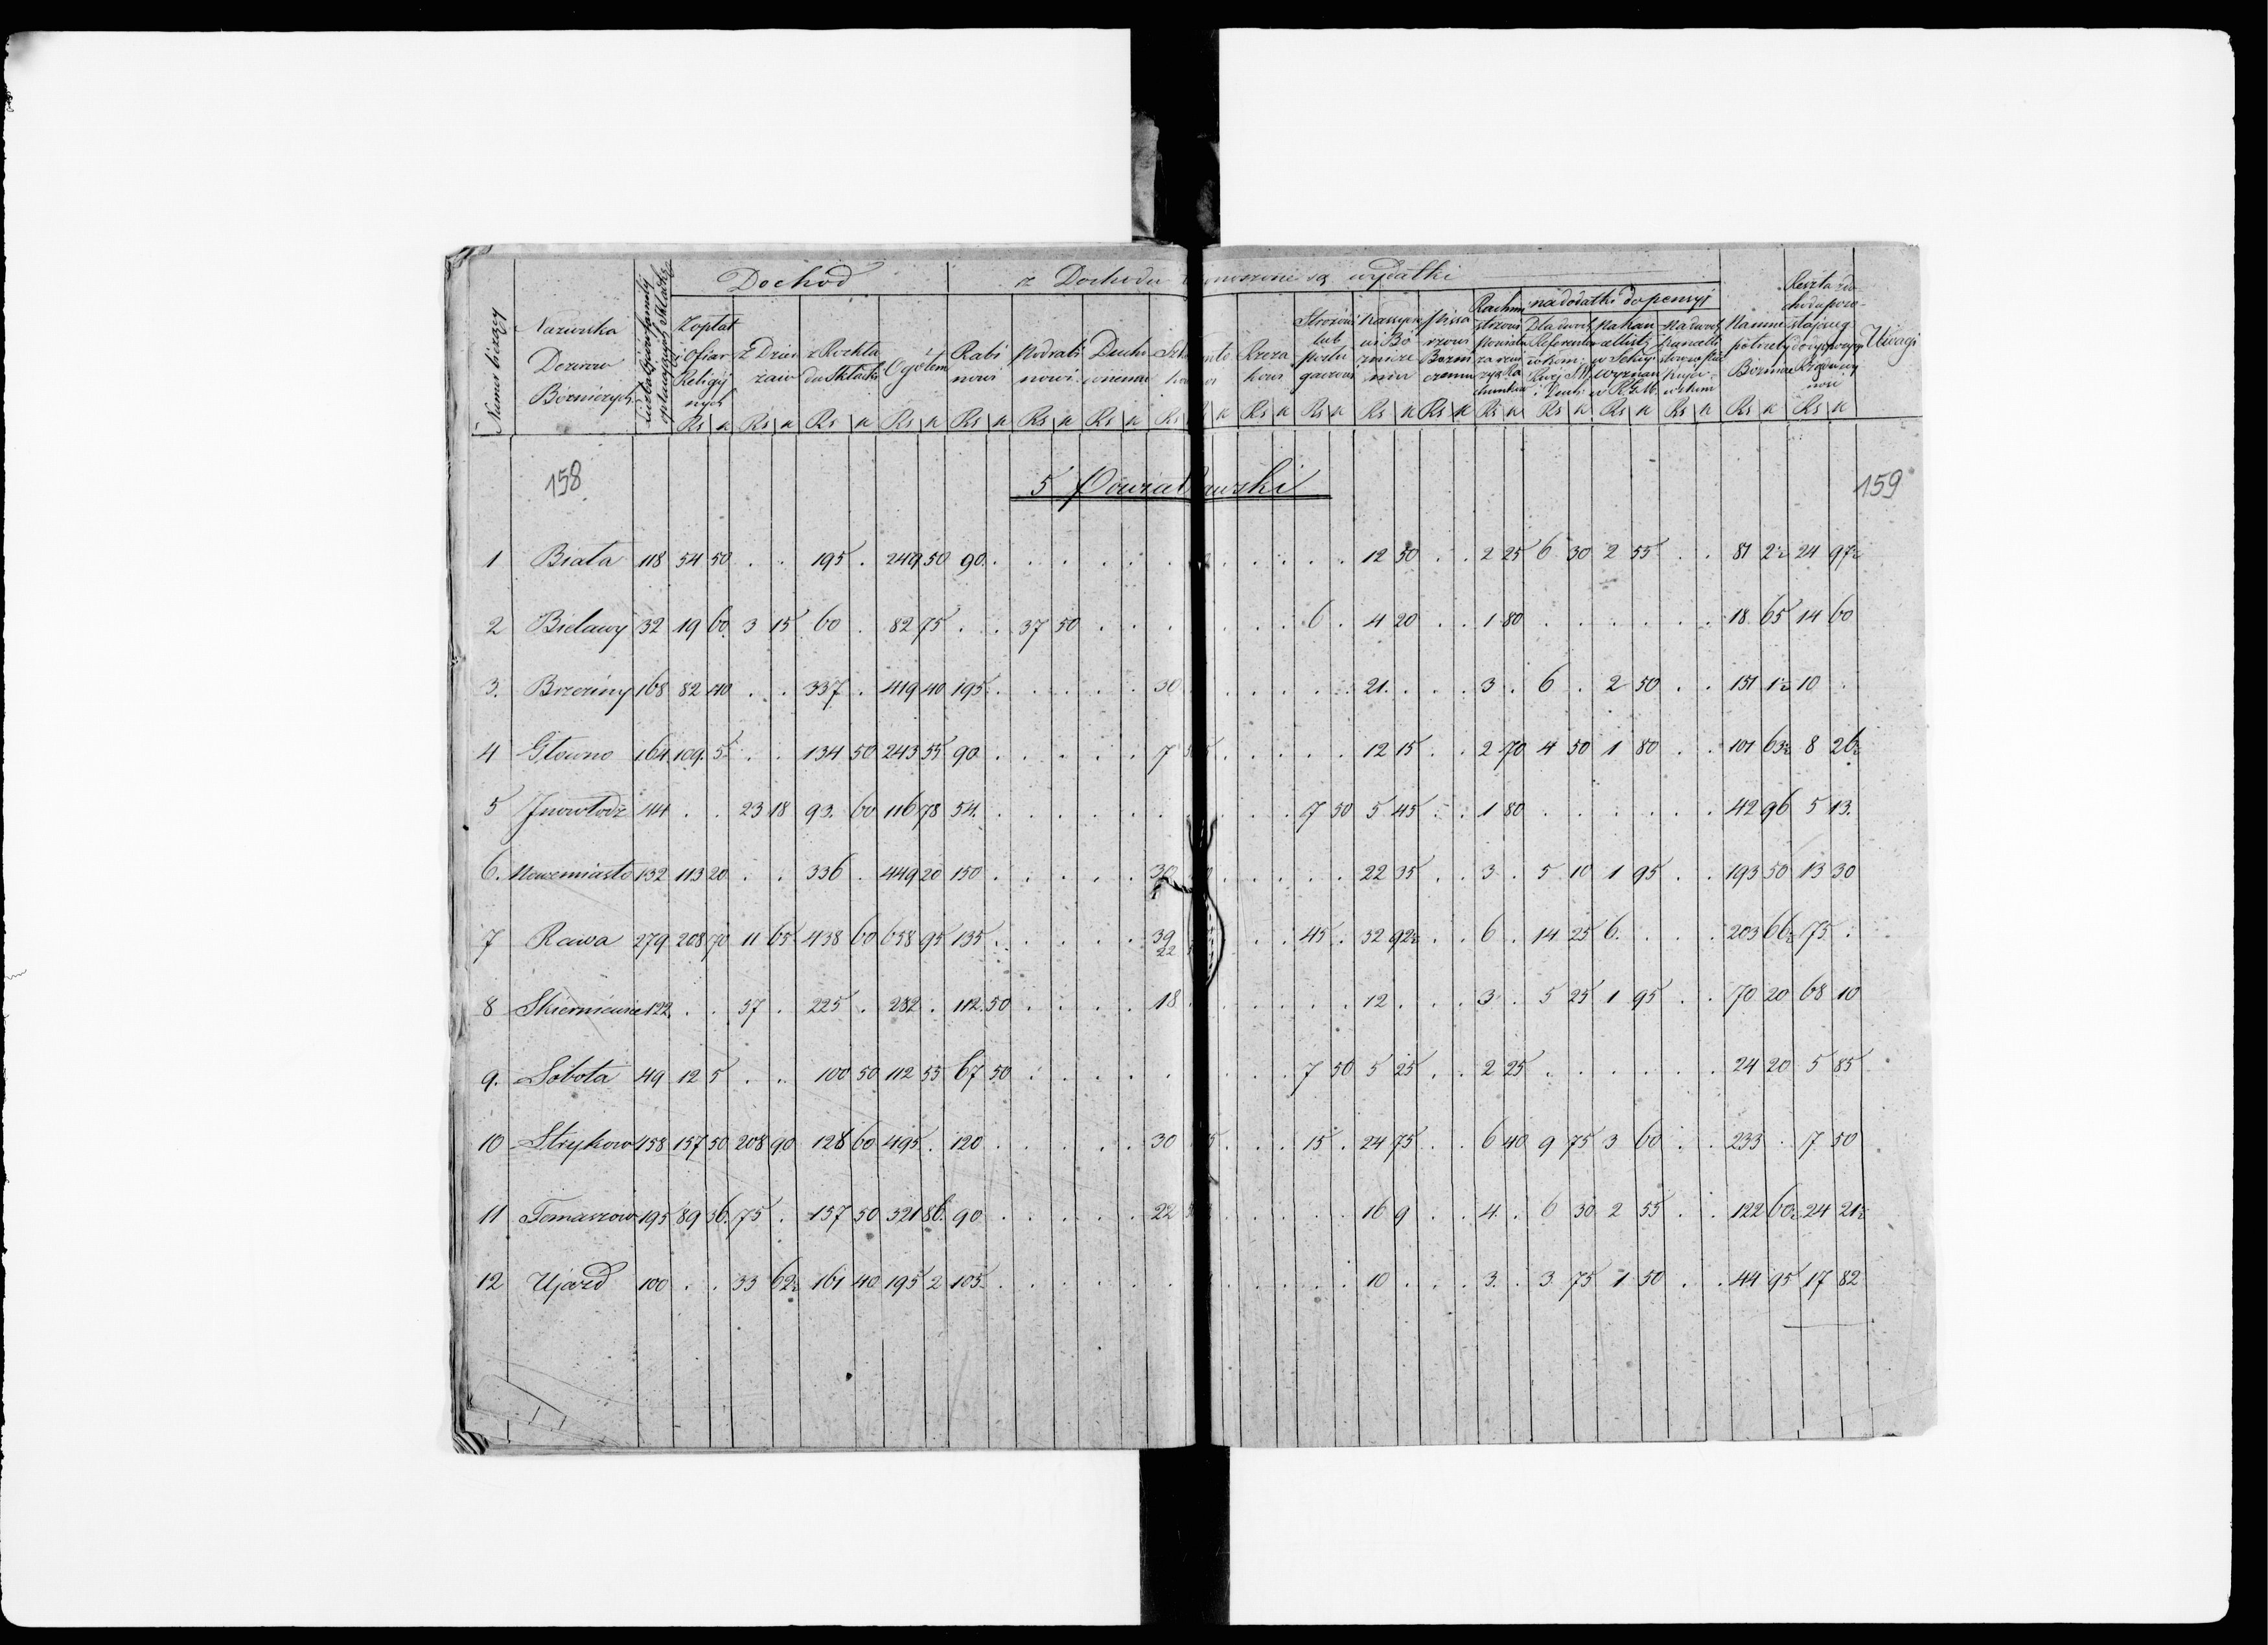 Dochod z Dochodu wydatki
Numer bieżący
Nazwiska Dozorow Bozniczych
Z opłat i Ofiar Religijnych
z Dzierzaw
z Rozkładu Składki
Ogółem
Rabinowi
Podrabinowi
Duchownemu
Stróżowi lub posługaczowi
Kassyerowi Bożniczemu
Pissarzowi Bożniczemu
na dodatki do pensyi
Na inne potrzeby Boznicze
Uwagi
Rs k Rs k Rs k Rs k Rs k Rs k Rs k Rs k Rs k Rs k Rs k Rs k Rs k Rs k Rs k Rs k Rs k Rs k
158 5 Powiat Rawski 159
1 Biała 118 54 50 . . 195 . 249 50 90 . 12 50 . . 2 25 6 30 2 55 . . 81 2½ 24 97½
2 Bielawy 32 19 60 3 15 60 . 82 75 . . 37 50 . 6 . 4 20 . . 1 80 . . 18 65 14 60
3. Brzeziny 168 82 40 . . 337 . 419 40 195 . 30 . 21 . . . 3 . 6 . 2 50 . . 151 1½ 10 .
4 Głowno 164 109 5 . . 134 50 243 55 90 . 7 . 12 15 . . 2 70 4 50 1 80 . . 101 63½ 8 26½
5 Inowłodz 44 . . 23 18 93 60 116 78 54 . 7 50 5 45 . . 1 80 . . 42 96 5 13
6. Nowemiasto 132 113 20 . . 336 . 449 20 150 . 30 . 22 35 . . 3 . 5 10 1 95 . . 193 50 13 30
7 Rawa 279 208 70 11 65 438 60 658 95 135 . 39 22 . 45 . 32 92½ . . 6 . 14 25 6 . . . 203 66½ 75 .
8 Skierniewice 122 . . 57 . 225 . 282 . 112 50 . 18 . 12 . . . 3 . 5 25 1 95 . . 70 20 68 10
9. Sobota 49 12 5 . . 100 50 112 55 67 50 . 7 50 5 25 . . 2 25 . . 24 20 5 85
10 Stryków 158 157 50 208 90 128 60 495 . 120 . 30 . 15 . 24 75 . . 6 40 9 75 3 60 . . 233 . 17 50
11 Tomaszow 195 89 36 75 . 157 50 321 86 90 . 22 . 16 9 . . 4 . 6 30 2 55 . . 122 60½ 24 21½
12 Ujazd 100 . . 33 62½ 161 40 195 2 105 . 10 . . . 3 . 3 75 1 50 . . 44 95 17 82